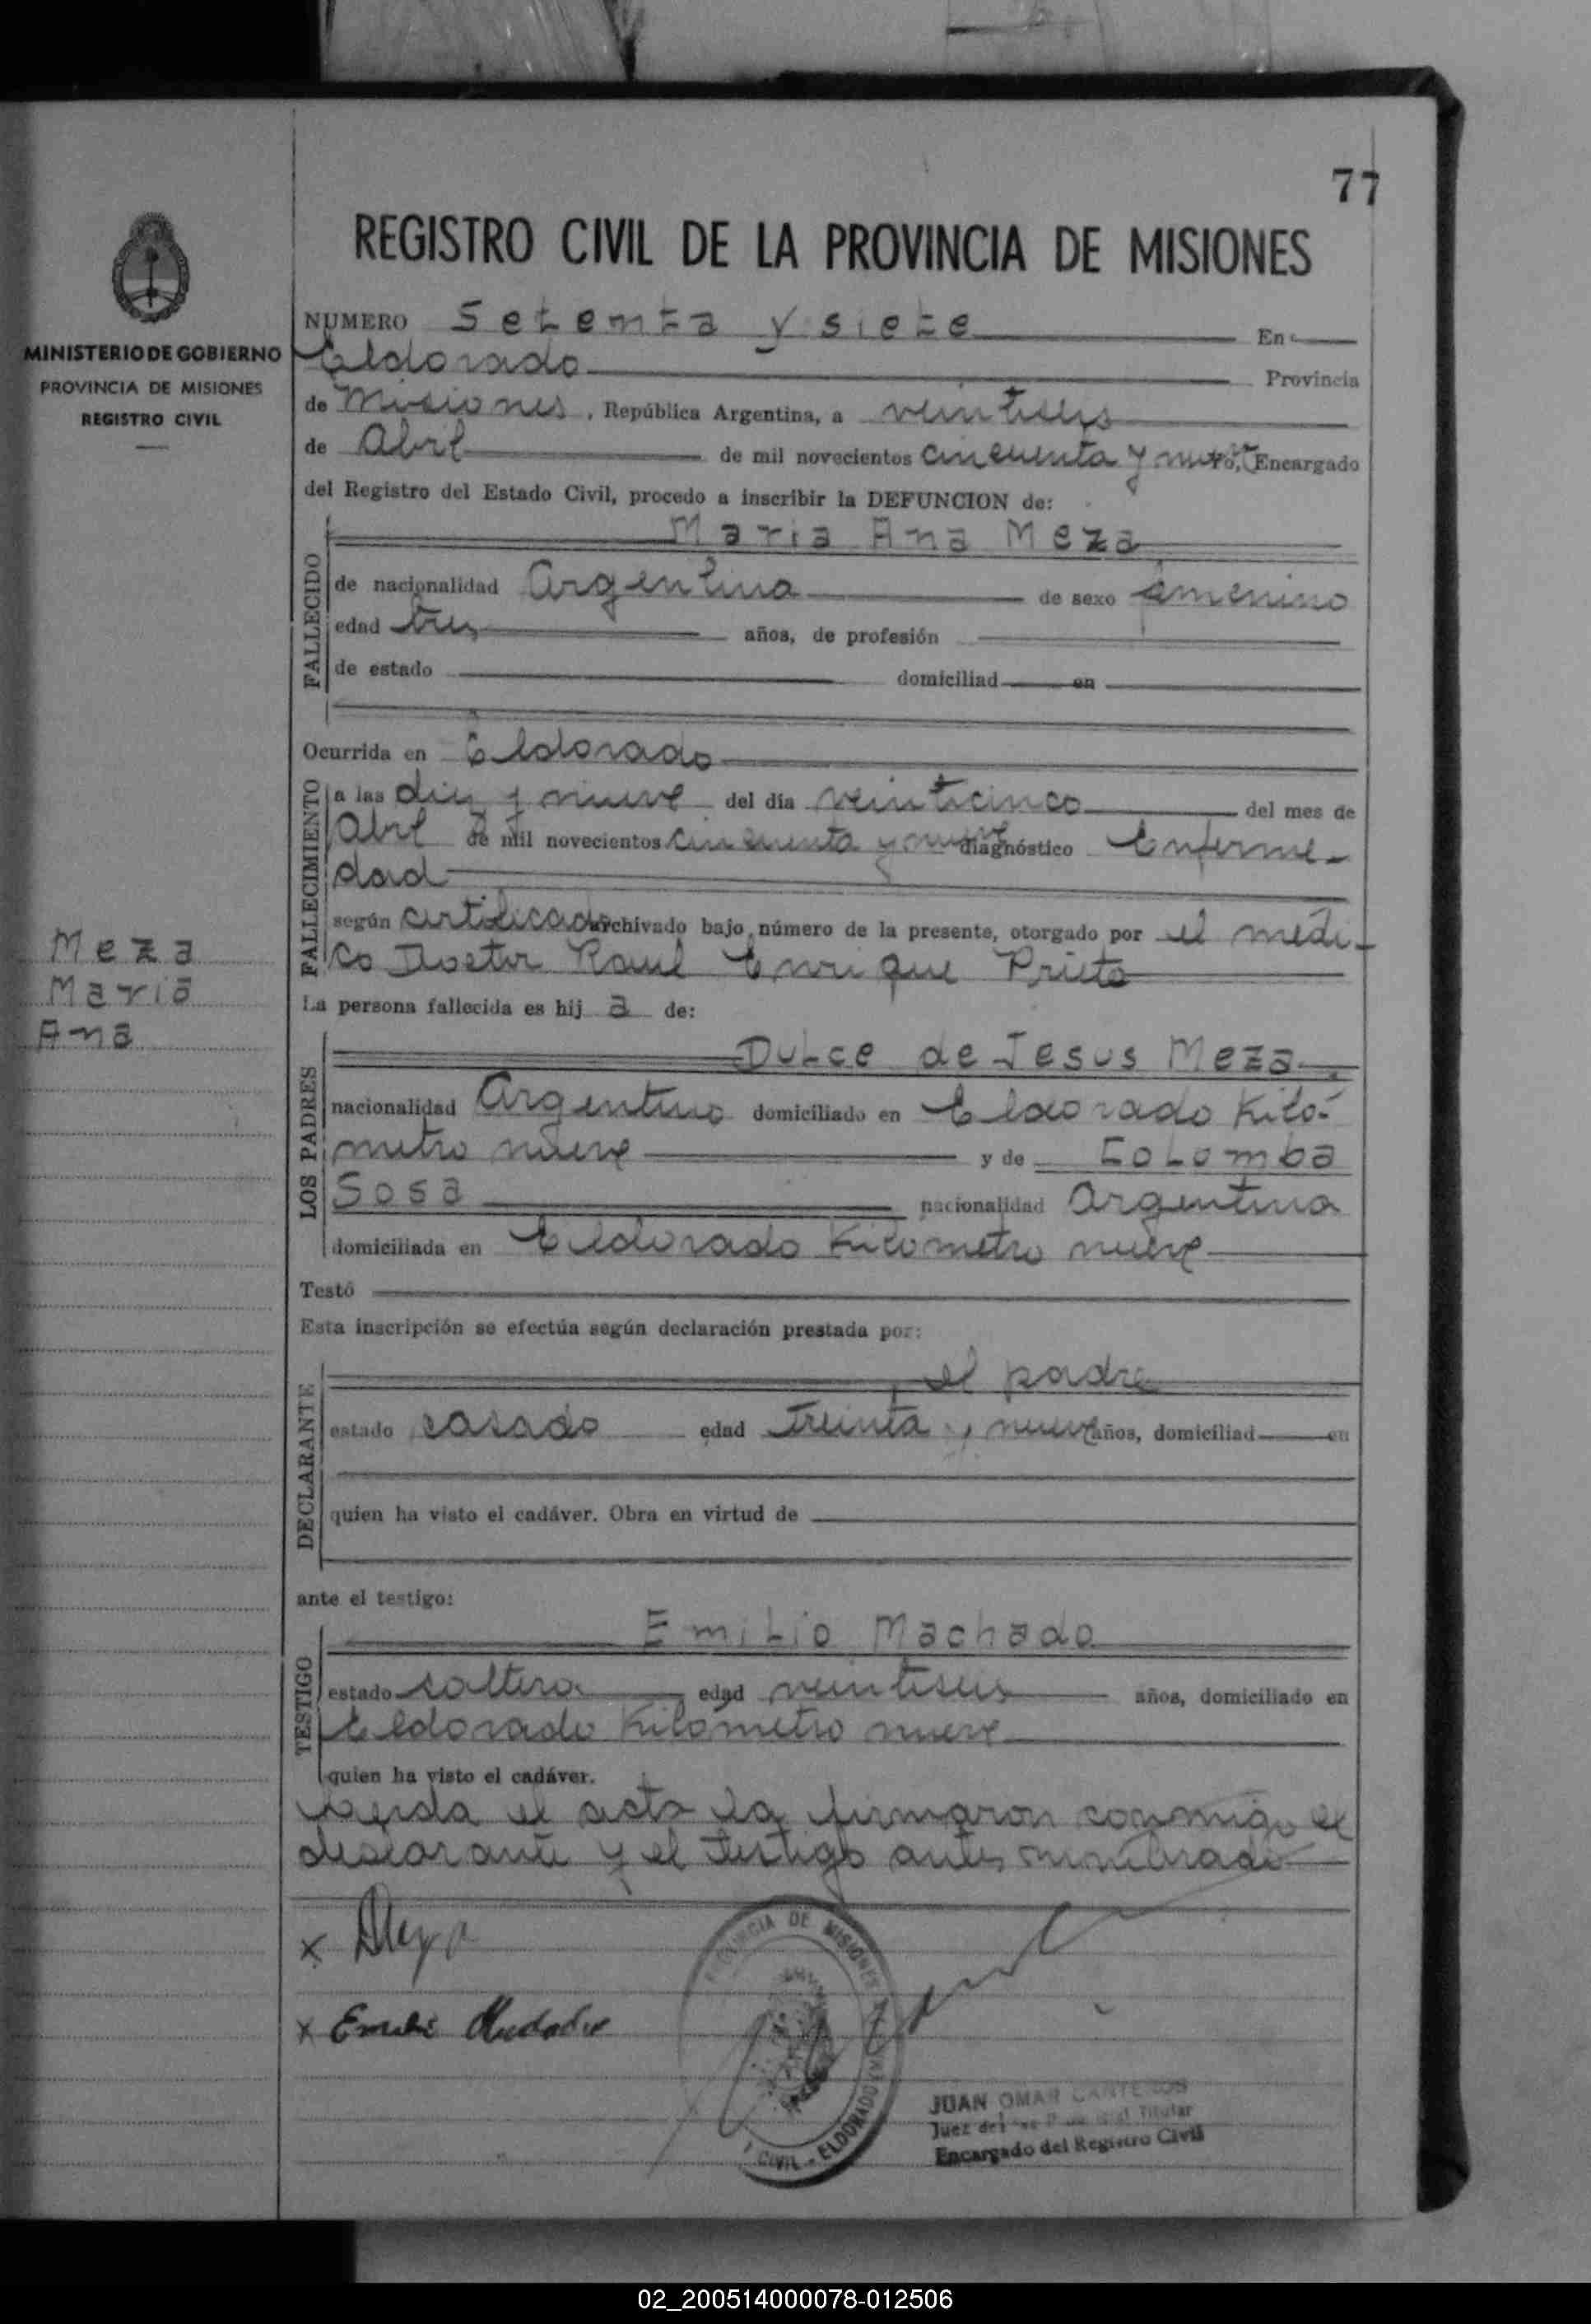 77
REGISTRO CIVIL DE LA PROVINCIA DE MISIONES
MINISTERIO DE GOBIERNO
PROVINCIA DE MISIONES
REGISTRO CIVIL
NUMERO Setenta y siete En
Eldorado Provincia
de Misiones, República Argentina, a veintiseis
de Abril de mil novecientos cincuenta y nueve yo, Encargado
del Registro del Estado Civil, procedo a inscribir la DEFUNCION de:
Maria Ana Meza
FALLECIDO
de nacionalidad Argentina de sexo femenino
edad tres años, de profesión
de estado domiciliad en
Ocurrida en Eldorado
FALLECIMIENTO
a las diez y nueve del día veinticinco del mes de
Abril de mil novecientos cincuenta y nueve diagnóstico Enferme-
dad
según certificado archivado bajo número de la presente, otorgado por el médi-
co Doctor Raul Enrique Prieto
Meza
Maria
Ana
La persona fallecida es hij a de:
LOS PADRES
Dulce de Jesus Meza
nacionalidad Argentino domiciliado en Eldorado Kiló-
metro nueve y de Colomba
Sosa nacionalidad Argentina
domiciliada en Eldorado Kilometro nueve
Testó
Esta inscripción se efectúa según declaración prestada por:
DECLARANTE
el padre
estado casado edad treinta y nueve años, domiciliad en
quien ha visto el cadáver. Obra en virtud de
ante el testigo:
TESTIGO
Emilio Machado
estado soltero edad veintiseis años, domiciliado en
Eldorado Kilómetro nueve
quien ha visto el cadáver.
Leida el acta la firmaron conmigo el
declarante y el testigo antes nombrado
x DMeza
x Emilio Machado
PROVINCIA DE MISIONES
CIVIL - ELDORADO
JUAN OMAR CANTEROS
Juez de Titular
Encargado del Registro Civil
02_200514000078-012506